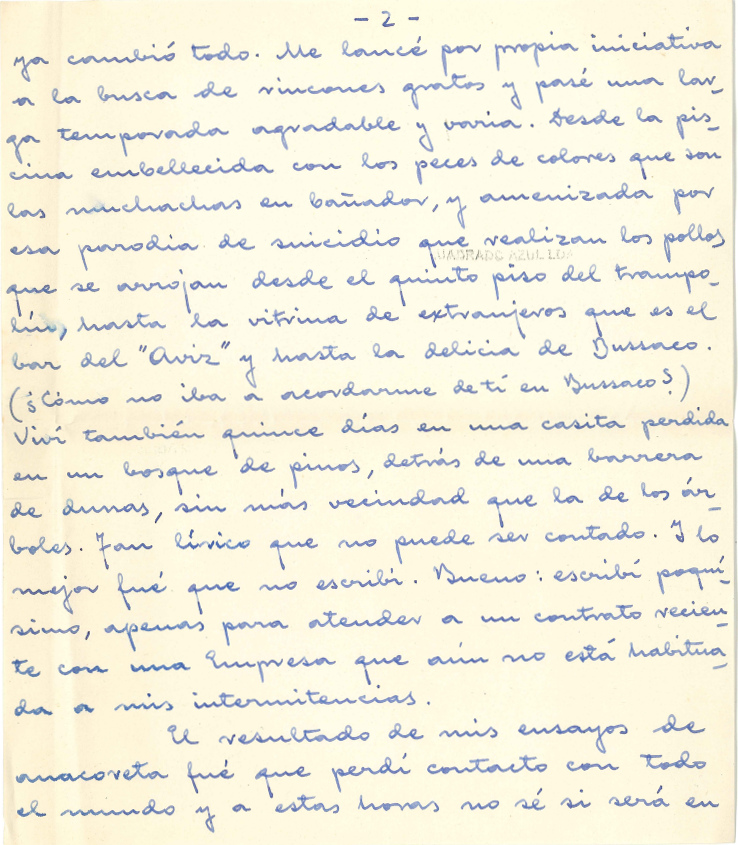 - 2 -
ya cambió todo. Me lancé por propia iniciativa
a la busca de rincones gratos y pasé una lar-
ga temporada agradable y varia. Desde la pis-
cina embellecida con los peces de colores que son
las muchachas en bañador, y amenizada por
esa parodia de suicidio que realizan los pollos
UADRADO AZUL LDA
que se arrojan desde el quinto piso del trampo-
lín, hasta la vitrina de extranjeros que es el
bar del "Aviz" y hasta la delicia de Bussaco.
(¿Cómo no iba a acordarme de tí en Bussaco?)
Viví también quince días en una casita perdida
en un bosque de pinos, detrás de una barrera
de dunas, sin más vecindad que la de los ár-
boles. Tan lírico que no puede ser contado. Y lo
mejor fué que no escribí. Bueno: escribí poquí-
simo, apenas para atender a un contrato recien-
te con una Empresa que aún no está habitua-
da a mis intermitencias.
El resultado de mis ensayos de
anacoreta fué que perdí contacto con todo
el mundo y a estas horas no sé si será en